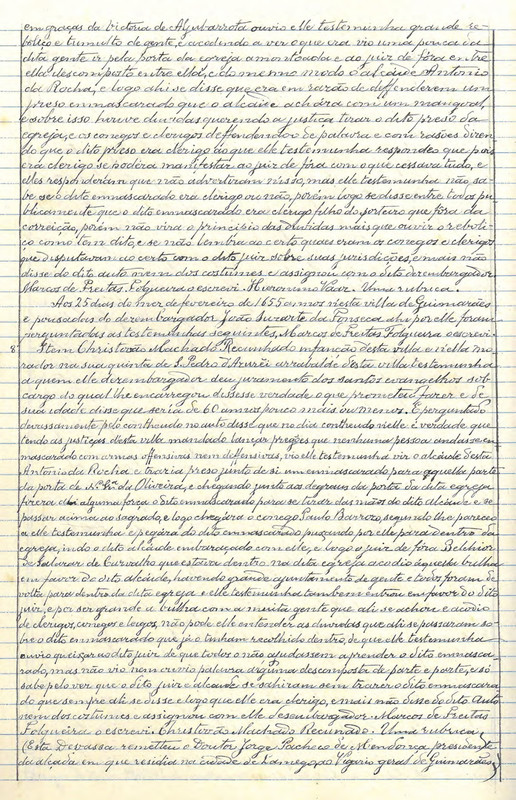 em graças da victoria de Aljubarrota ouvio elle testeminha grande re-
boliço e tumulto de gente, e acodindo a ver o que era vio uma porca da
dita gente ir pela porta da egreja amontoada e ao juiz de fóra entre
ella descomposto entre ella, e do mesmo modo o alcaide Antonio
da Rocha, e logo ahi se disse que era em razão de defenderem um
preso enmascarado que o alcaide achára com um mangoal,
e sobre isso houve duvidas querendo a justiça tirar o dito preso da
egreja, e os conegos e clerigos defendendo-o de palavra e com rasões dizen-
do que o dito preso era clerigo ao que elle testeminha respondeo que pois
era clerigo se podéra manifestar ao juiz de fóra com o que cessava tudo, e
elles responderam que não advertiram nisso, mas elle testeminha não sa-
be se o dito enmascarado era clerigo ou não, porém logo se disse entre todos pu-
blicamente que o dito enmascarado era clerigo filho do porteiro que fora da
correição, porém não vira o principio das duvidas mais que ouvir o reboli-
ço como tem dito, e se não lembra ao certo quaes eram os conegos e clerigos
que disputavam ao certo com o dito juiz sobre suas jurisdições, e mais não
disse do dito auto nem dos costumes e assignou com o dito dezembargador
Marcos de Freitas Folgueira o escrevi. Heronimo Vaz. Uma rubrica.
Aos 25 dias do mez de fevereiro de 1655 annos nesta villa de Guimarães
e pousadas do dezembargador João Suzarte da Fonseca ahi por elle foram
perguntadas as testeminhas seguintes, Marcos de Freitas Folgueira o escrevi.
8 Item Christovão Machado Recunhado infanção desta villa e nella mo-
rador na sua quinta de S. Pedro d'Azurei arrabalde desta villa testeminha
a quem elle dezembargador deu juramento dos santos evangelhos sob
cargo do qual lhe encarregou dissesse verdade o que prometeu fazer e de
sua idade disse que seria de 60 annos pouco mais ou menos. E perguntado
devassamente pelo contheudo no auto disse que no dia contheudo nelle é verdade que
tendo as justiças desta villa mandado lançar pregões que nenhuma pessoa andasse en-
mascarado com armas offensivas nem deffensivas, vio elle testeminha vir o alcaide desta
Antonio da Rocha e trazia preso junto de si um enmascarado para aquelle parte
da porta de N. Sr.ª da Oliveira, e chegando junto aos degraus da porta da dita egreja
fizera alguma força o dito enmascarado para se tirar das mãos do dito alcaide e se
passar acima ao sagrado, e logo chegára o conego Paulo Barrozo, segundo lhe pareceo
a elle testeminha e pegára do dito enmascarado puxando por elle para dentro da
egreja, indo o dito alcaide embaraçado com elle, e logo o juiz de fóra Belchior
de Salazar de Carvalho que estava dentro na dita egreja acodio áquella bulha
em favor do dito alcaide, havendo grande ajuntamento de gente e todos foram de
volta para dentro da dita egreja e elle testeminha tambem entrou em favor do dito
juiz, e por ser grande a bulha com a muita gente que ali se achou e acodio
de clerigos, conegos e leigos, não pode elle entender as duvidas que ali se passaram so-
bre o dito enmascarado que já o tinham recolhido dentro, de que elle testeminha
ouvio queixar ao dito juiz de que todos o não ajudassem a prender o dito enmasca-
rado, mas não vio nem ouvio palavra alguma descomposta de parte a parte, e só
sabe pelo ver que o dito juiz e alcaide se sahiram sem trazer o dito enmascara-
do que sempre ali se disse e logo que elle era clerigo, e mais não disse do dito auto
nem dos costumes e assignou com elle desembargador. Marcos de Freitas
Folgueira o escrevi. Christovão Machado Recunado. Uma rubrica.
(Esta Devassa remetteu o Doutor Jorge Pacheco de Mendonça presidente
da alçada em que residia na cidade de Lamego, ao Vigario geral de Guimarães,)